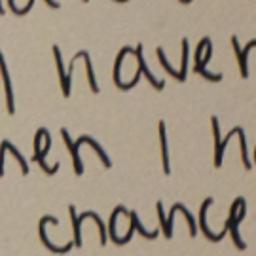 I haver
hen I ha
chance